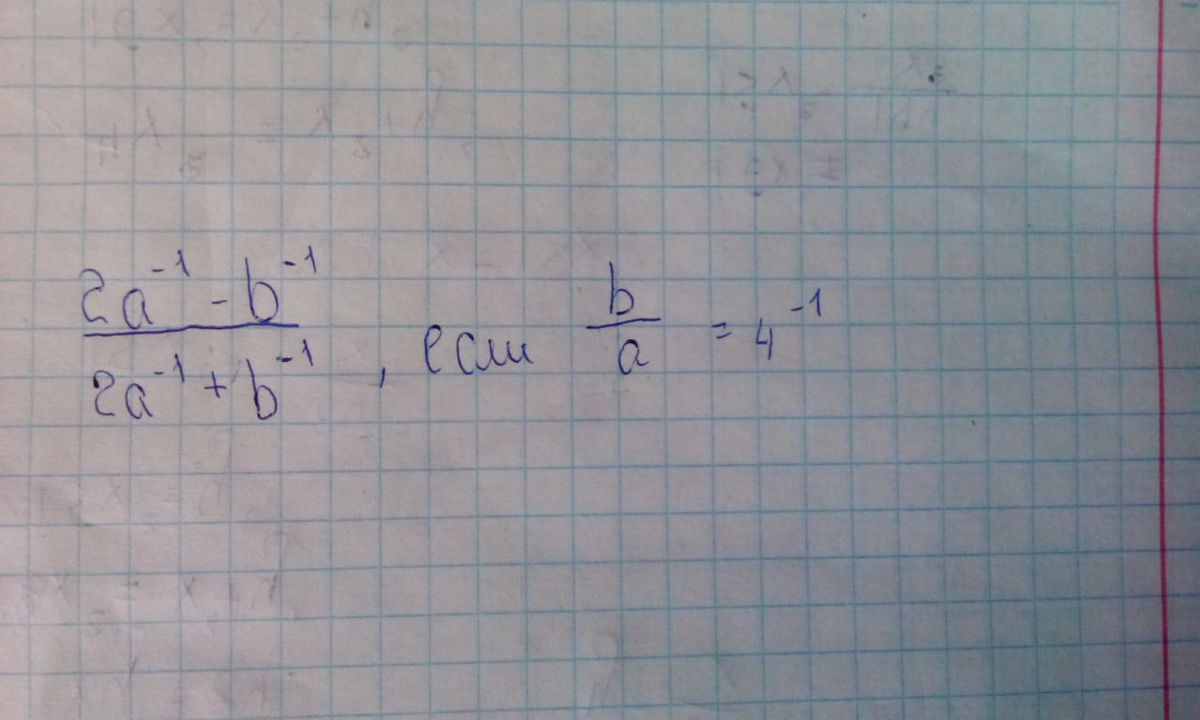 2a⁻¹ - b⁻¹
2a⁻¹ + b⁻¹ , если b/a = 4⁻¹